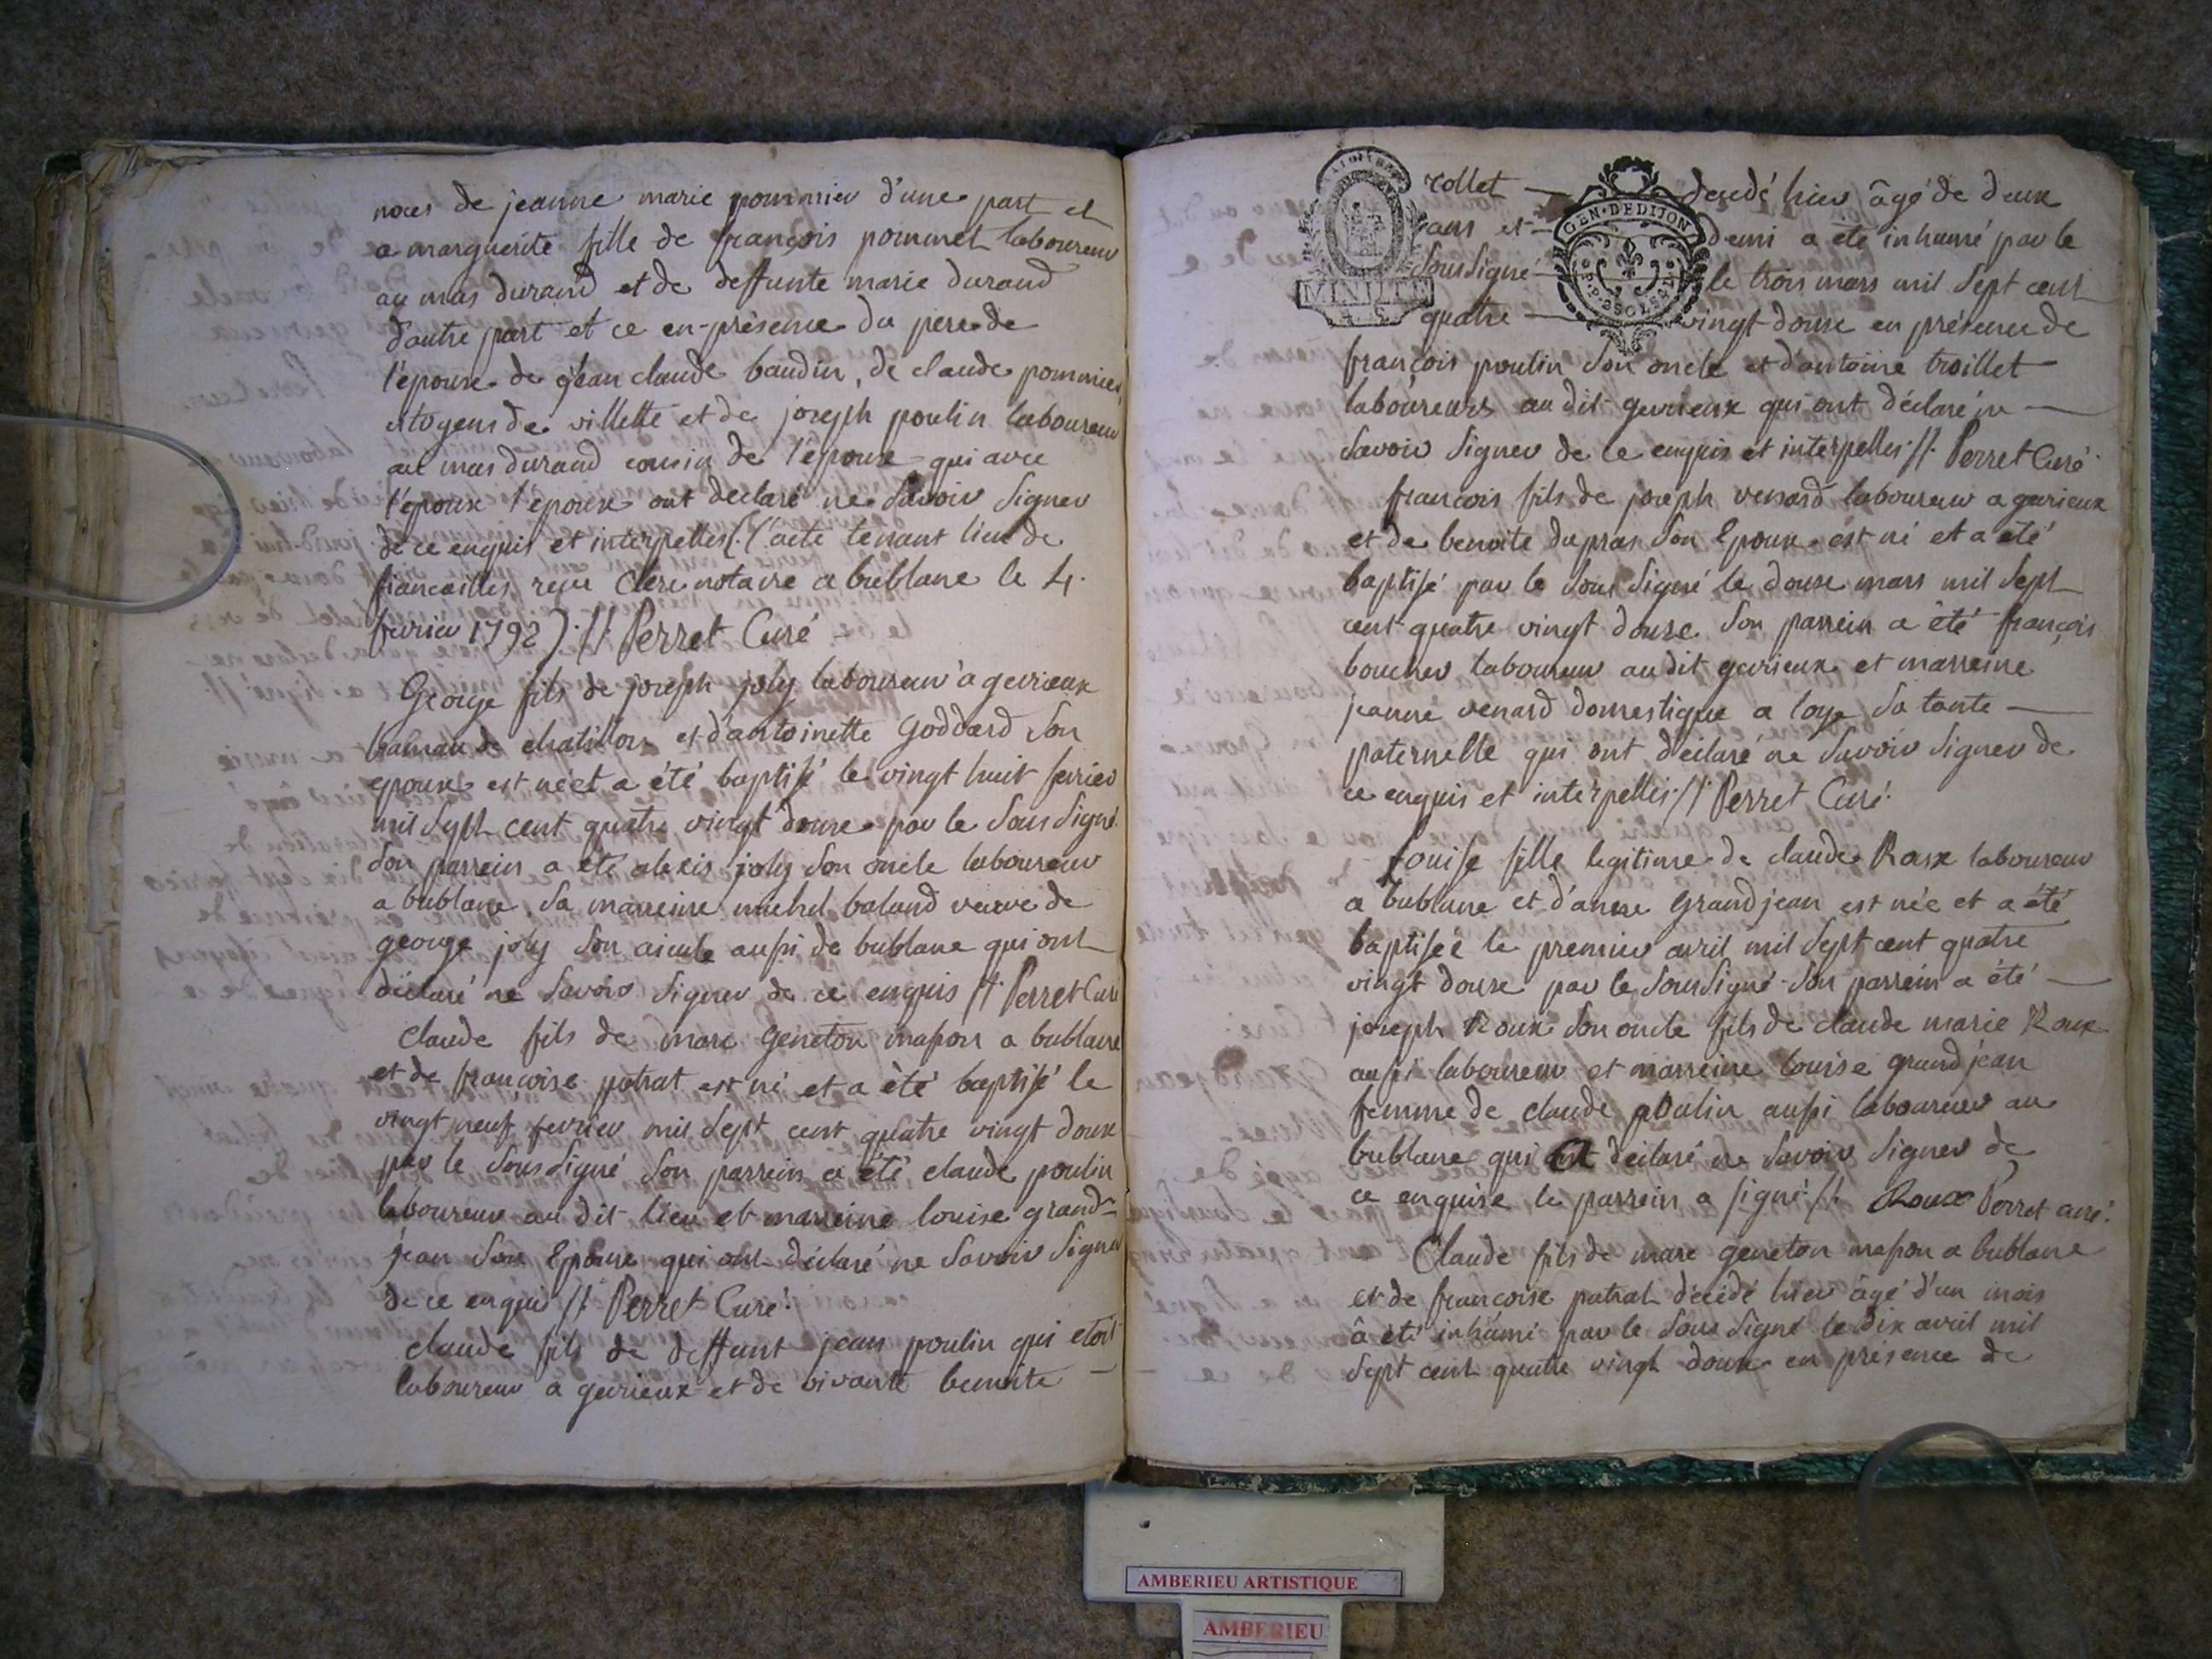 noces de jeanne marie pommier d'une part et
a marguerite fille de françois pommet laboureur
au mas durand et de deffunte marie durand
d'autre part et ce en présence du pere de
l'épouse de jean claude baudin, de claude pommier,
citoyens de villette et de joseph poulin laboureur
au mas durand cousin de l'épouse qui avec
l'époux l'épouse ont declaré ne savoir signer
de ce enquis et interpellés (l'acte tenant lieu de
fiancailles reçu Clerc notaire a bublane le 4.
fevrier 1792) // Perret Curé
George fils de joseph joly laboureur à gevrieux
hameau de chatillon et d'antoinette Goddard son
epouse est né et a été baptisé le vingt huit fevrier
mil sept cent quatre vingt douse par le sous signé
son parrein a été alexis joly son oncle laboureur
a bublane. sa marreine michel baland veuve de
george joly son aieule aussi de bublane qui ont
déclaré ne savoir signer de ce enquis // Perret Curé
Claude fils de marc geneton masson a bublane
et de françoise patrat est né et a été baptisé le
vingt neuf fevrier mil sept cent quatre vingt douse
par le sous signé son parrein a été claude poulin
laboureur au dit lieu et marreine louise grand-
jean son Epouse qui ont déclaré ne savoir signer
de ce enquis // Perret Curé.
claude fils de deffunt jean poulin qui etoit
laboureur a gevrieux et de vivante benoite
rollet — decedé hier âgé de deux
ans et — demi a été inhumé par le
sousigné — le trois mars mil sept cent
quatre — vingt douse en présence de
GEN. DE DIJON
françois poulin son oncle et d'antoine troillet
laboureurs au dit gevrieux qui ont déclaré ne
savoir signer de ce enquis et interpellés // Perret Curé
françois fils de joseph venard laboureur a gevrieux
et de benoite dupras son Epouse est né et a été
baptisé par le sous signé le douse mars mil sept
cent quatre vingt douse son parrein a été françois
boucher laboureur au dit gevrieux et marreine
jeanne venard domestique a loye sa tante —
paternelle qui ont déclaré ne savoir signer de
ce enquis et interpellés // Perret Curé.
Louise fille legitime de claude Roux laboureur
a bublane et d'anne Grandjean est née et a été
baptisée le premier avril mil sept cent quatre
vingt douse par le sousigné son parrein a été —
joseph Roux son oncle fils de claude marie Roux
aussi laboureur et marreine louise grandjean
femme de claude poulin aussi laboureur au
bublane qui a déclaré ne savoir signer de
ce enquise le parrein a signé // Roux Perret curé.
Claude fils de marc geneton masson a bublane
et de françoise patrat décédé hier âgé d'un mois
â été inhumé par le sous signé le dix avril mil
sept cent quatre vingt douse en présence de
AMBERIEU ARTISTIQUE
AMBERIEU